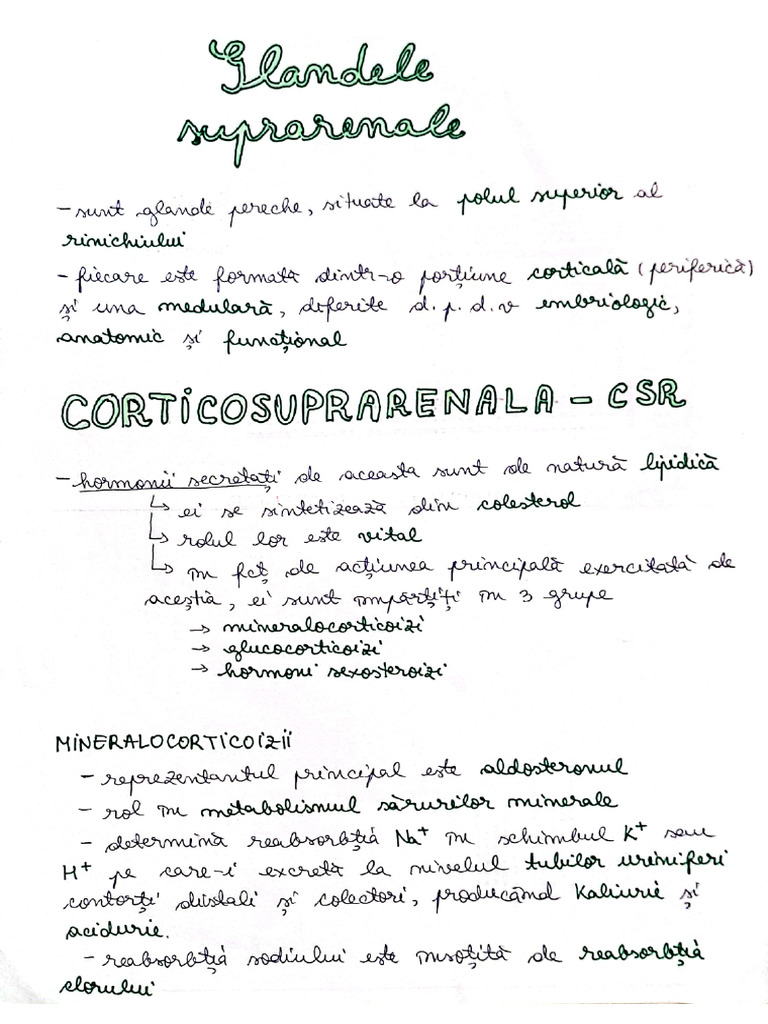 Glandele
suprarenale
- sunt glande pereche, situate la polul superior al
rinichiului
- fiecare este formată dintr-o porțiune corticală (periferică)
și una medulară, diferite d.p.d.v embriologic,
anatomic și funațional
CORTICOSUPRARENALA - CSR
- hormonii secretați de aceasta sunt de natură lipidică
↳ ei se sintetizează din colesterol
↳ rolul lor este vital
↳ în fcț de acțiunea principală exercitată de
aceștia, ei sunt împărțiți în 3 grupe
→ mineralocorticoizi
→ glucocorticoizi
→ hormoni sexosteroizi
MINERALOCORTICOIZII
- reprezentantul principal este aldosteronul
- rol în metabolismul sărurilor minerale
- determină reabsorbția Na⁺ în schimbul K⁺ sau
H⁺ pe care-i excretă la nivelul tubilor uriniferi
contorți distali și colectori, producând Kaliurie și
acidurie.
- reabsorbția sodiului este însoțită de reabsorbția
clorului